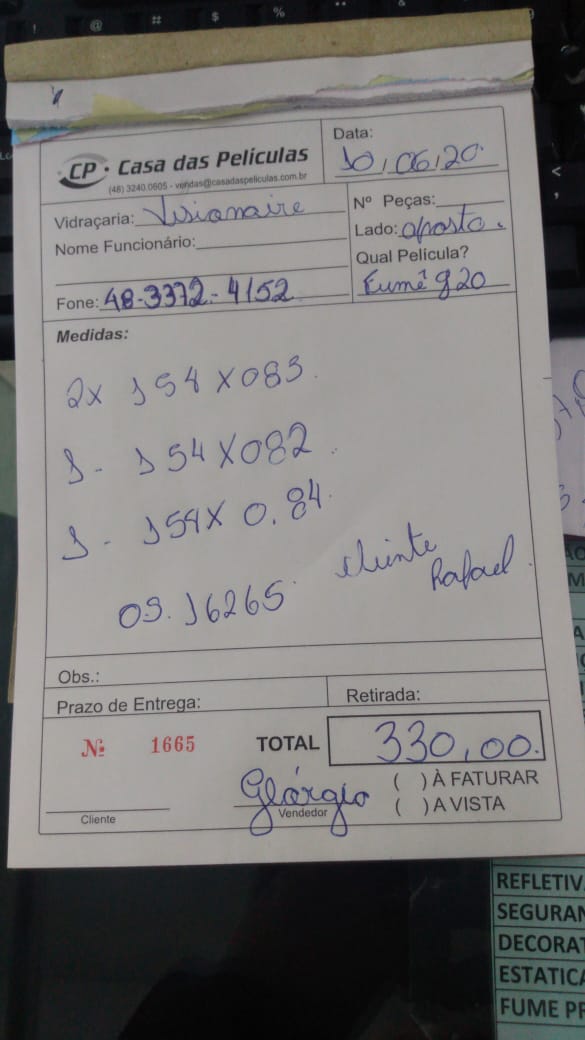 CP Casa das Películas
(48) 3240.0605 - vendas@casadaspeliculas.com.br
Data:
10/06/20
Vidraçaria: Visionaire
Nome Funcionário:
Fone: 48-3372-4152
Nº Peças:
Lado: oposto.
Qual Película?
Fumê g20
Medidas:
2x 154 X 083
1 - 154 X 082
1 - 154 X 0,84
OS. 16265 cliente
Rafael
Obs.:
Prazo de Entrega:
Retirada:
Nº 1665
TOTAL 330,00.
( ) À FATURAR
( ) A VISTA
Cliente
Glórgio
Vendedor
REFLETIV
SEGURAN
DECORAT
ESTATICA
FUME PR